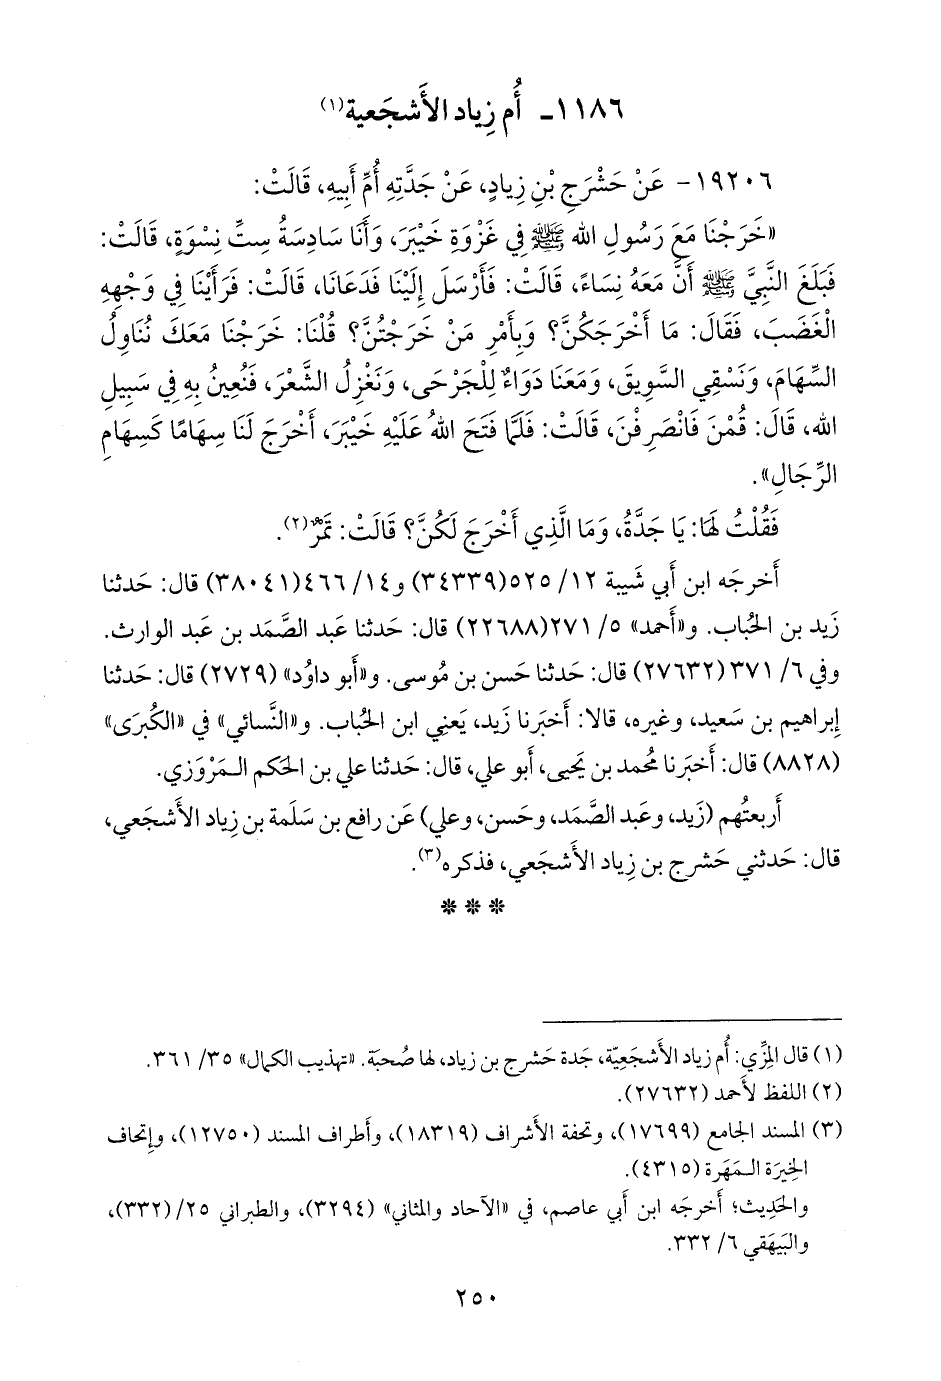 ١١٨٦ـ أُم زِياد الأَشجَعية(١)
١٩٢٠٦- عَنْ حَشْرَجِ بْنِ زِيادٍ، عَنْ جَدَّتِهِ أُمِّ أَبِيهِ، قَالَتْ:
«خَرَجْنَا مَعَ رَسُولِ الله ﷺ فِي غَزْوَةِ خَيْبَرَ، وَأَنَا سَادِسَةُ سِتِّ نِسْوَةٍ، قَالَتْ:
فَبَلَغَ النَّبِيَّ ﷺ أَنَّ مَعَهُ نِسَاءً، قَالَتْ: فَأَرْسَلَ إِلَيْنَا فَدَعَانَا، قَالَتْ: فَرَأَيْنَا فِي وَجْهِهِ
الْغَضَبَ، فَقَالَ: مَا أَخْرَجَكُنَّ؟ وَبِأَمْرِ مَنْ خَرَجْتُنَّ؟ قُلْنَا: خَرَجْنَا مَعَكَ نُنَاوِلُ
السِّهَامَ، وَنَسْقِي السَّوِيقَ، وَمَعَنَا دَوَاءٌ لِلْجَرْحَى، وَنَغْزِلُ الشَّعْرَ، فَنُعِينُ بِهِ فِي سَبِيلِ
الله، قَالَ: قُمْنَ فَانْصَرِفْنَ، قَالَتْ: فَلَمَّا فَتَحَ اللهُ عَلَيْهِ خَيْبَرَ، أَخْرَجَ لَنَا سِهَامًا كَسِهَامِ
الرِّجَالِ».
فَقُلْتُ لَهَا: يَا جَدَّةُ، وَمَا الَّذِي أَخْرَجَ لَكُنَّ؟ قَالَتْ: تَمْرٌ(٢).
أَخرجَه ابن أَبي شَيبة ١٢/ ٥٢٥(٣٤٣٣٩) و١٤/ ٤٦٦(٣٨٠٤١) قال: حَدثنا
زَيد بن الحُباب. و«أَحمد» ٥/ ٢٧١(٢٢٦٨٨) قال: حَدثنا عَبد الصَّمَد بن عَبد الوارث.
وفي ٦/ ٣٧١(٢٧٦٣٢) قال: حَدثنا حَسن بن مُوسى. و«أَبو داوُد» (٢٧٢٩) قال: حَدثنا
إِبراهيم بن سَعيد، وغيره، قالا: أَخبَرنا زَيد، يَعني ابن الحُباب. و«النَّسائي» في «الكُبرَى»
(٨٨٢٨) قال: أَخبَرنا مُحمد بن يَحيى، أَبو علي، قال: حَدثنا علي بن الحَكم الـمَرْوَزي.
أَربعتُهم (زَيد، وعَبد الصَّمَد، وحَسن، وعلي) عَن رافع بن سَلَمة بن زِياد الأَشجَعي،
قال: حَدثني حَشرج بن زِياد الأَشجَعي، فذكره(٣).
* * *
(١) قال المِزِّي: أُم زياد الأَشجَعيّة، جَدة حَشرج بن زياد، لها صُحبَة. «تهذيب الكمال» ٣٥/ ٣٦١.
(٢) اللفظ لأَحمد (٢٧٦٣٢).
(٣) المسند الجامع (١٧٦٩٩)، وتحفة الأشراف (١٨٣١٩)، وأطراف المسند (١٢٧٥٠)، وإتحاف
الخِيرَة الـمَهَرة (٤٣١٥).
والحَدِيث؛ أَخرجَه ابن أَبي عاصم، في «الآحاد والمثاني» (٣٢٩٤)، والطبراني ٢٥/ (٣٣٢)،
والبَيهَقي ٦/ ٣٣٢.
٢٥٠